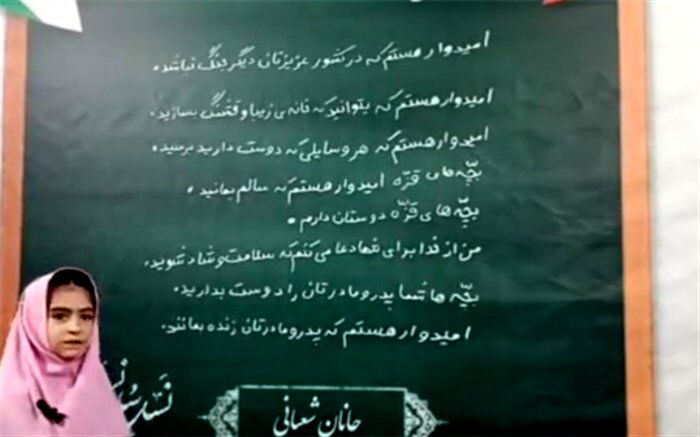 امیدوار هستم که در کشور عزیزتان دیگر جنگ نباشد.
امیدوار هستم که بتوانید که خانه‌ی زیبا و قشنگ بسازید.
امیدوار هستم که هر وسایلی که دوست دارید برسید.
بچّه‌های غزّه امیدوار هستم که سالم بمانید.
بچّه‌های غزّه دوستتان دارم.
من از خدا برای شما دعا می‌کنم که سلامت و شاد شوید.
بچّه‌ها شما پدر و مادرتان را دوست بدارید.
امیدوار هستم که پدر و مادرتان زنده بمانند.
حانان شعبانی